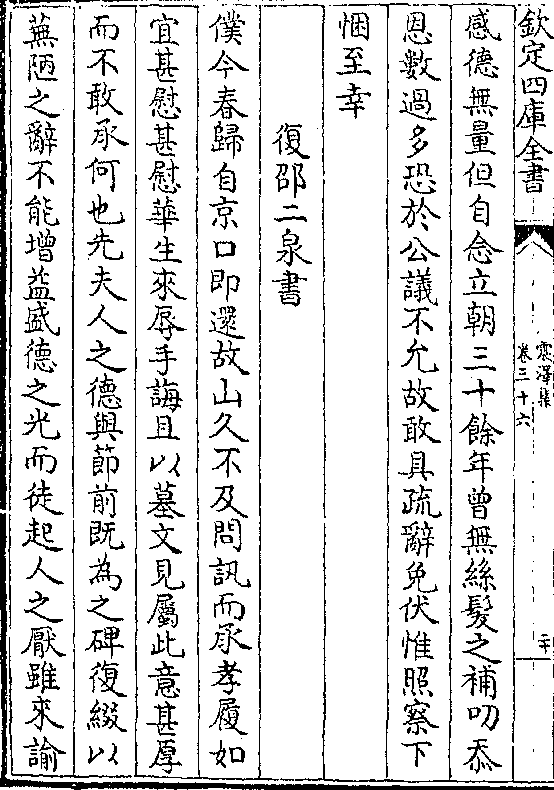 欽定四庫全書
震澤集
卷三十六
二十
感德無量但自念立朝三十餘年曾無絲髮之補叨忝
恩數過多恐於公議不允故敢具疏辭免伏惟照察下
悃至幸
復邵二泉書
僕今春歸自京口即還故山久不及問訊而承孝履如
宜甚慰甚慰華生來辱手誨且以墓文見屬此意甚厚
而不敢承何也先夫人之德與節前既為之碑復綴以
蕪陋之辭不能增益盛德之光而徒起人之厭雖來諭